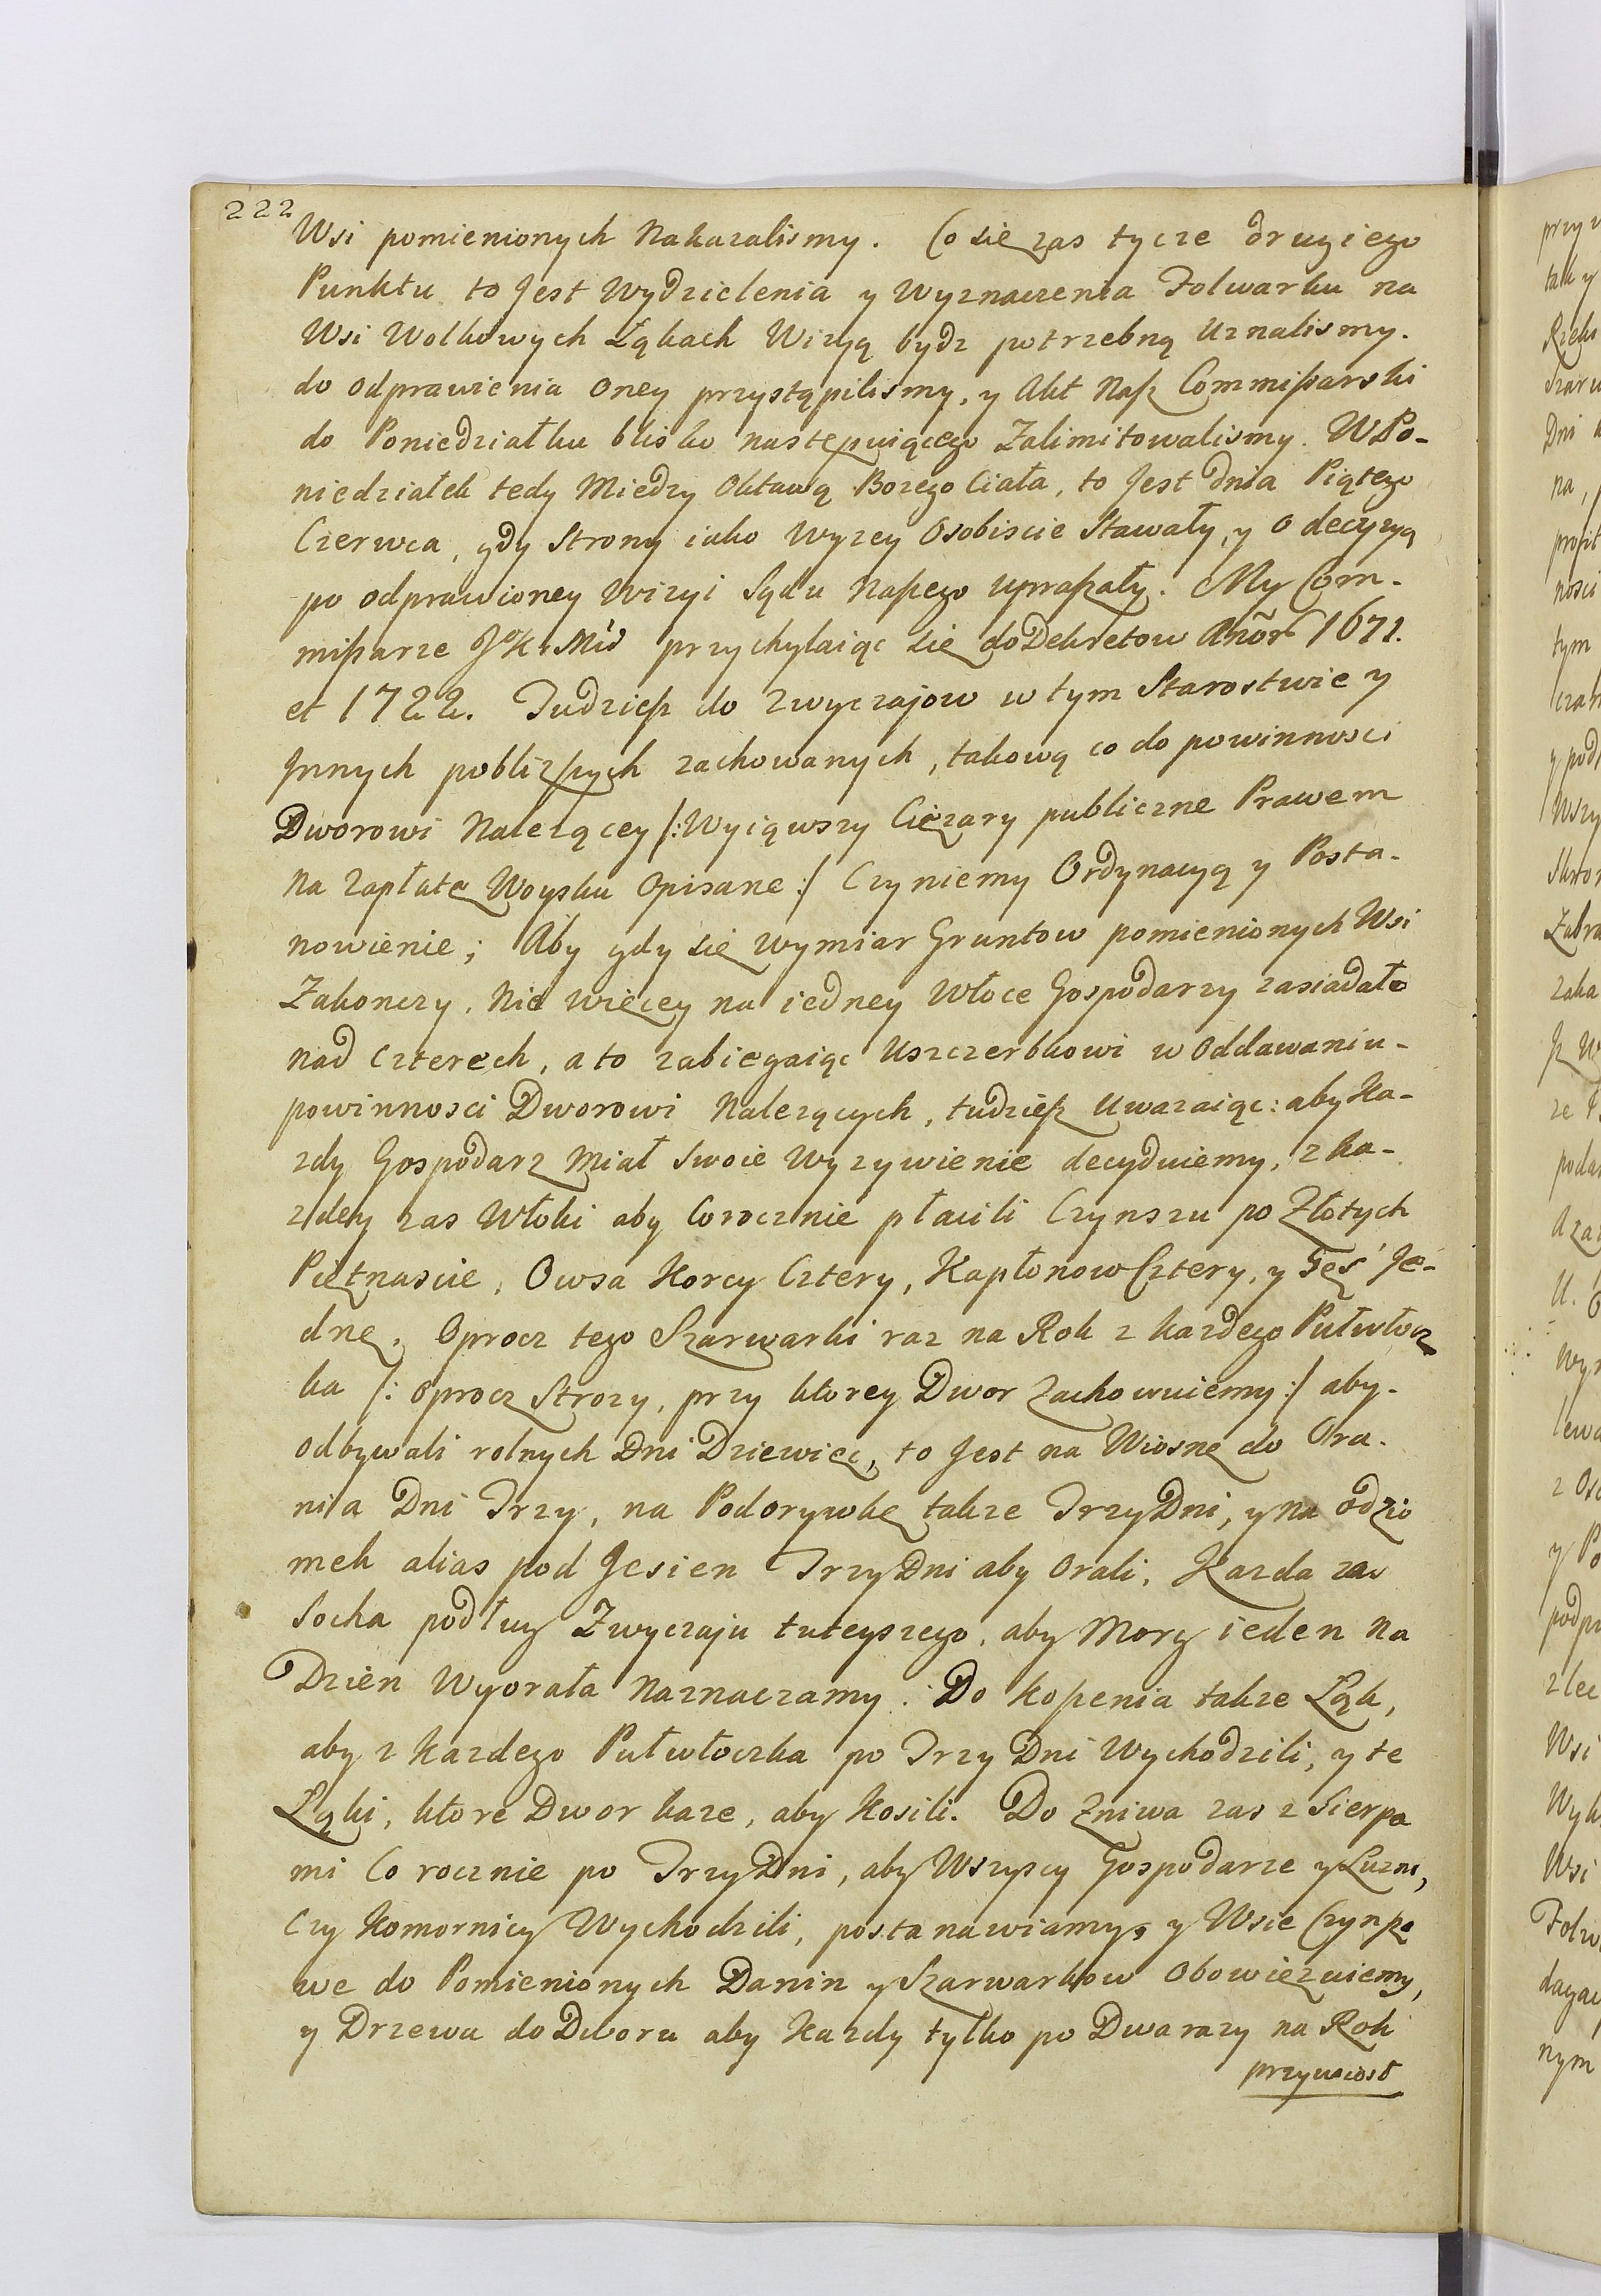 222
Wsi pomienionych Nakazalismy. Co się zas tycze drugiego
Punktu to Jest Wydzielenia y Wyznaczenia Folwarku na
Wsi Wolkowych Łąkach Wizyą bydz potrzebną Uznalismy.
do odprawienia oney przystąpilismy, y Akt Nasz Commissarski
do Poniedziałku blisko następuiącego Zalimitowalismy. W Po-
niedziałek tedy Miedzy Oktawą Bozego Ciała, to Jest dnia Piątego
Czerwca, gdy Strony iako Wyzey Osobiscie Stawały, y o decyzyą
po odprawioney Wizyi Sądu Naszego upraszały. My Com-
missarze JoKr Mśi przychylaiąc się do Dekretow Anõr 1671.
et 1722. Tudziesz do Zwyczajow w tym Starostwie y
Innych poblizszych zachowanych, takową co do powinnosci
Dworowi Nalezącey /: Wyiąwszy Ciężary publiczne Prawem
na Zapłatę Woysku Opisane :/ Czyniemy Ordynacyą y Posta-
nowienie; Aby gdy się Wymiar Gruntow pomienionych Wsi
Zakonczy. Nie więcey na iedney Włoce Gospodarzy zasiadało
nad czterech, a to zabiegaiąc Uszczerbkowi w Oddawaniu-
powinnosci Dworowi Nalezących, tudziesz Uwazaiąc: aby Ka-
zdy Gospodarz Miał Swoie Wyzywienie decyduiemy, z ka-
zdey zas Włoki aby Corocznie płacili Czynszu po Złotych
Piętnascie, Owsa Korcy Cztery, Kapłonow Cztery, y Gęś Je-
dnę. Oprocz tego Szarwarki raz na Rok z kazdego Pułwłocz
ka /: oprocz Strozy, przy ktorey Dwor Zachowuiemy :/ aby-
odbywali rolnych Dni Dziewięc, to Jest na Wiosnę do Ora-
nia Dni Trzy, na Podorywkę takze Trzy Dni, y na odzio
mek alias pod Jesien Trzy Dni aby Orali, Kazda zas
Socha podług Zwyczaju tuteyszego, aby Morg ieden na
Dzien Wyorała Naznaczamy. Do Koszenia takze Łąk,
aby z Kazdego Pułwłoczka po Trzy Dni Wychodzili, y te
Łąki, ktore Dwor kaze, aby Kosili. Do Zniwa zas z Sierpa
mi Co rocznie po Trzy Dni, aby Wszyscy Gospodarze y Luzni,
Czy Komornicy Wychodzili, postanawiamy, y Wsie Czynszo
we do Pomienionych Danin y Szarwarkow Obowięzuiemy,
y Drzewa do Dworu aby Kazdy tylko po Dwa razy na Rok
przywiosł